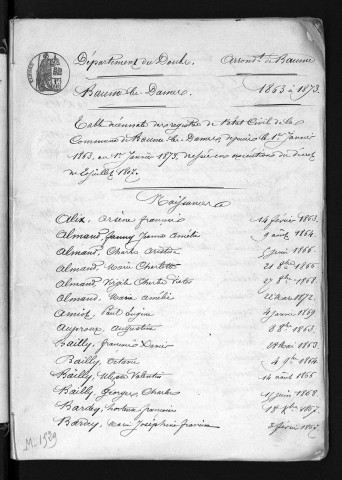 Département du Doubs.
Arrondt. de Baume
Baume-les-Dames.
1863 à 1873.
Table décennale des registres de l'état Civil de la
Commune de Baume-les-Dames, depuis le 1er Janvier
1863, au 1er Janvier 1873, dressée en exécution du décret
du 20 Juillet 1807.
Naissances
Alix, Arsène François 14 février 1863.
Almand, Fanny Jeanne Amélie 9 août 1864.
Almand, Charles 5 Juin 1866.
Almand, Marie Charlotte 21 8bre 1866
Almand, Virgile Charles 27 8bre 1868.
Almand, Maria Amélie 22 Mars 1872.
Amiot, Paul Eugène 4 Janvier 1869
Auproux, Augustine 8 8bre 1863.
Bailly, François Xavier Mai 1863.
Bailly, Octave 4 1864.
Bailly, Ulysse Valentin 14 août 1866
Bailly, Georges Charles 17 Juin 1868.
Barday, François 1867.
Barday, Marie Joséphine février